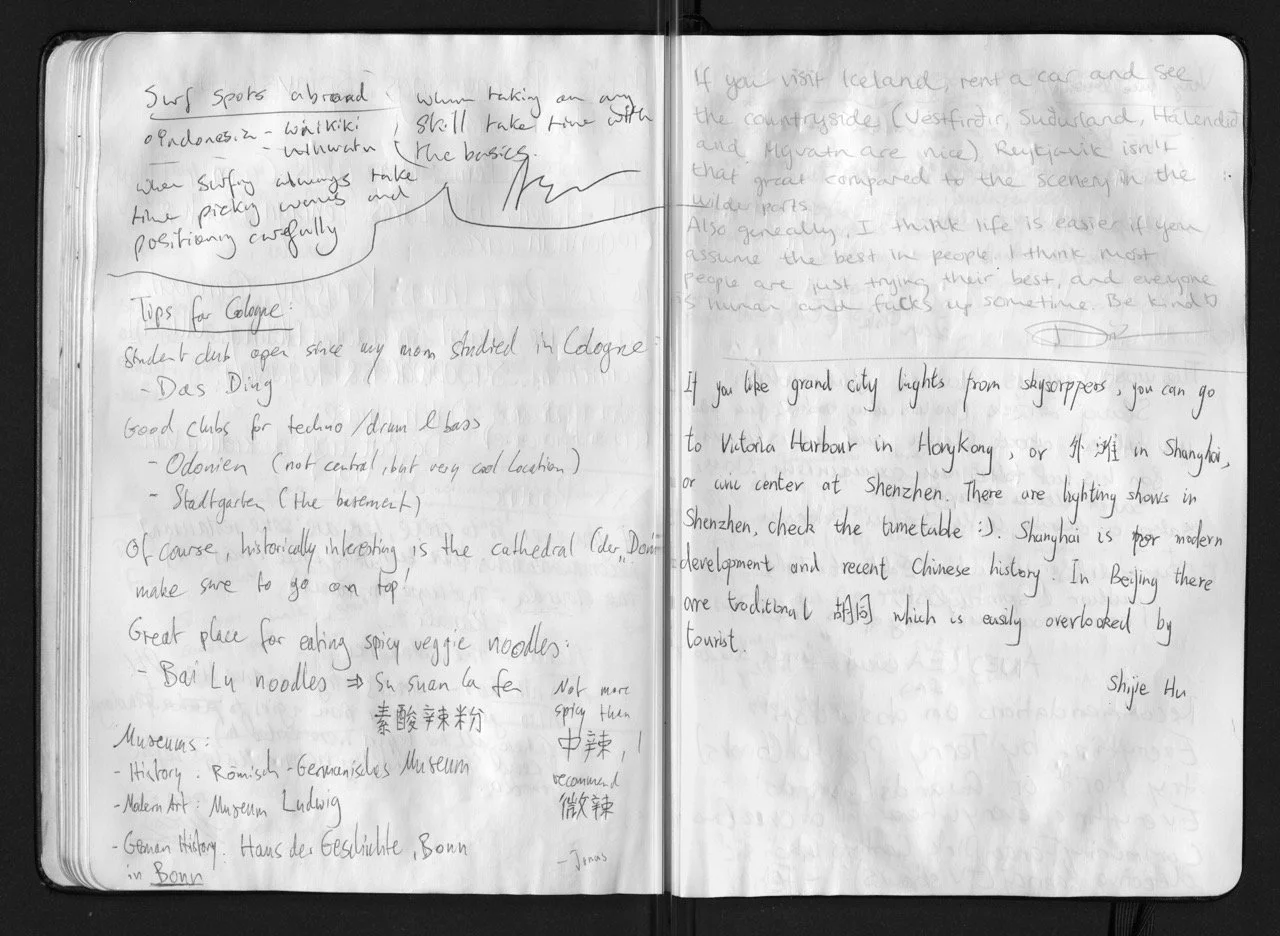 Surf spots abroad
o Indonesia - waikiki
- uluwatu
when surfing always take
time picky waves and
positiony carefully
when taking on any
skill take time with
the basics.
Tips for Cologne:
Student club open since my mom studied in Cologne:
- Das Ding
Good clubs for techno/drum & bass
- Odonien (not central, but very cool location)
- Stadtgarten (the basement)
Of course, historically interesting is the cathedral (der "Dom"
make sure to go on top!
Great place for eating spicy veggie noodles:
- Bai Lu noodles ⇒ Su suan la fen
素酸辣粉
Not more
spicy than
中辣, I
recommend
微辣
Museums:
- History: Römisch-Germanisches Museum
- Modern Art: Museum Ludwig
- German History: Haus der Geschichte, Bonn
in Bonn
- Jonas
If you visit Iceland, rent a car and see
the countryside, (Vestfirðir, Suðurland, Hálendið
and Mývatn are nice) Reykjavík isn't
that great compared to the scenery in the
wilder parts
Also generally, I think life is easier if you
assume the best in people. I think most
people are just trying their best, and everyone
is human and fucks up sometime. Be kind ♡
If you like grand city lights from skyscrppers, you can go
to Victoria Harbour in HongKong, or 外滩 in Shanghai,
or civic center at Shenzhen. There are lighting shows in
Shenzhen, check the timetable :). Shanghai is for modern
development and recent Chinese history. In Beijing there
are traditional 胡同 which is easily overlooked by
tourist.
Shijie Hu